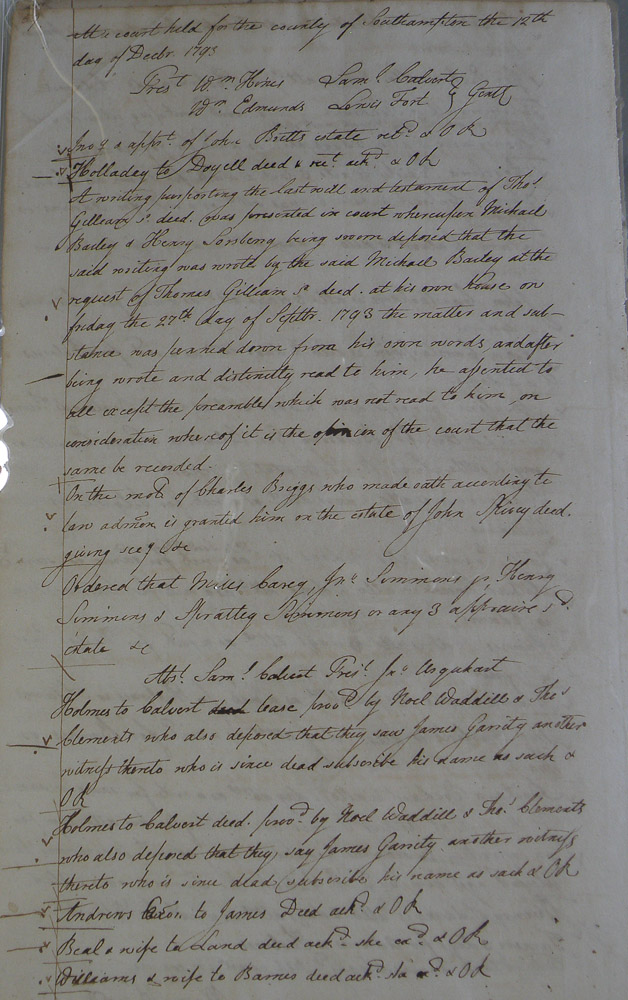 At a court held for the county of Southampton the 12th
day of Decbr 1793
Prest Wm Hines Saml Calvert
Wm Edmunds Lewis Fort } Gentl
Invy & appt. of John Britts estate retd & OR
Holladay to Doyell deed & rect. ackd & OR
A writing purporting the last will and testament of Thos
Gilliam sr deed. was presented in court whereupon Michael
Bailey & Henry being sworn deposed that the
said writing was wrote by the said Michael Bailey at the
request of Thomas Gilliam sr deed. at his own house on
friday the 27th day of Septbr. 1793 the matter and sub-
stance was penned down from his own words, and after
being wrote and distinctly read to him, he assented to
all except the preamble which was not read to him, on
consideration whereof it is the opinion of the court that the
same be recorded.
On the mod of Charles Briggs who made oath according to
law admon is granted him on the estate of John Spivey deed.
giving secy &c
Ordered that Miles Carey, Jno Simmons jr, Henry
Simmons & Spratley Simmons or any 3 appraise sd
estate &c
Abst. Saml Calvert Prest. Jno Urquhart
Holmes to Calvert deed lease provd by Noel Waddill & Thos
Clements who also deposed that they saw James Garrity another
witness thereto who is since dead subscribe his name as such &
OR
Holmes to Calvert deed. provd. by Noel Waddill & Thos Clements
who also deposed that they say James Garrity another witness
thereto who is since dead subscribe his name as such & OR
Andrews Exor. to James Deed ackd & OR
Beal & wife to Land deed ackd. she exd. & OR
Williams & wife to Barnes deed ackd. she exd. & OR